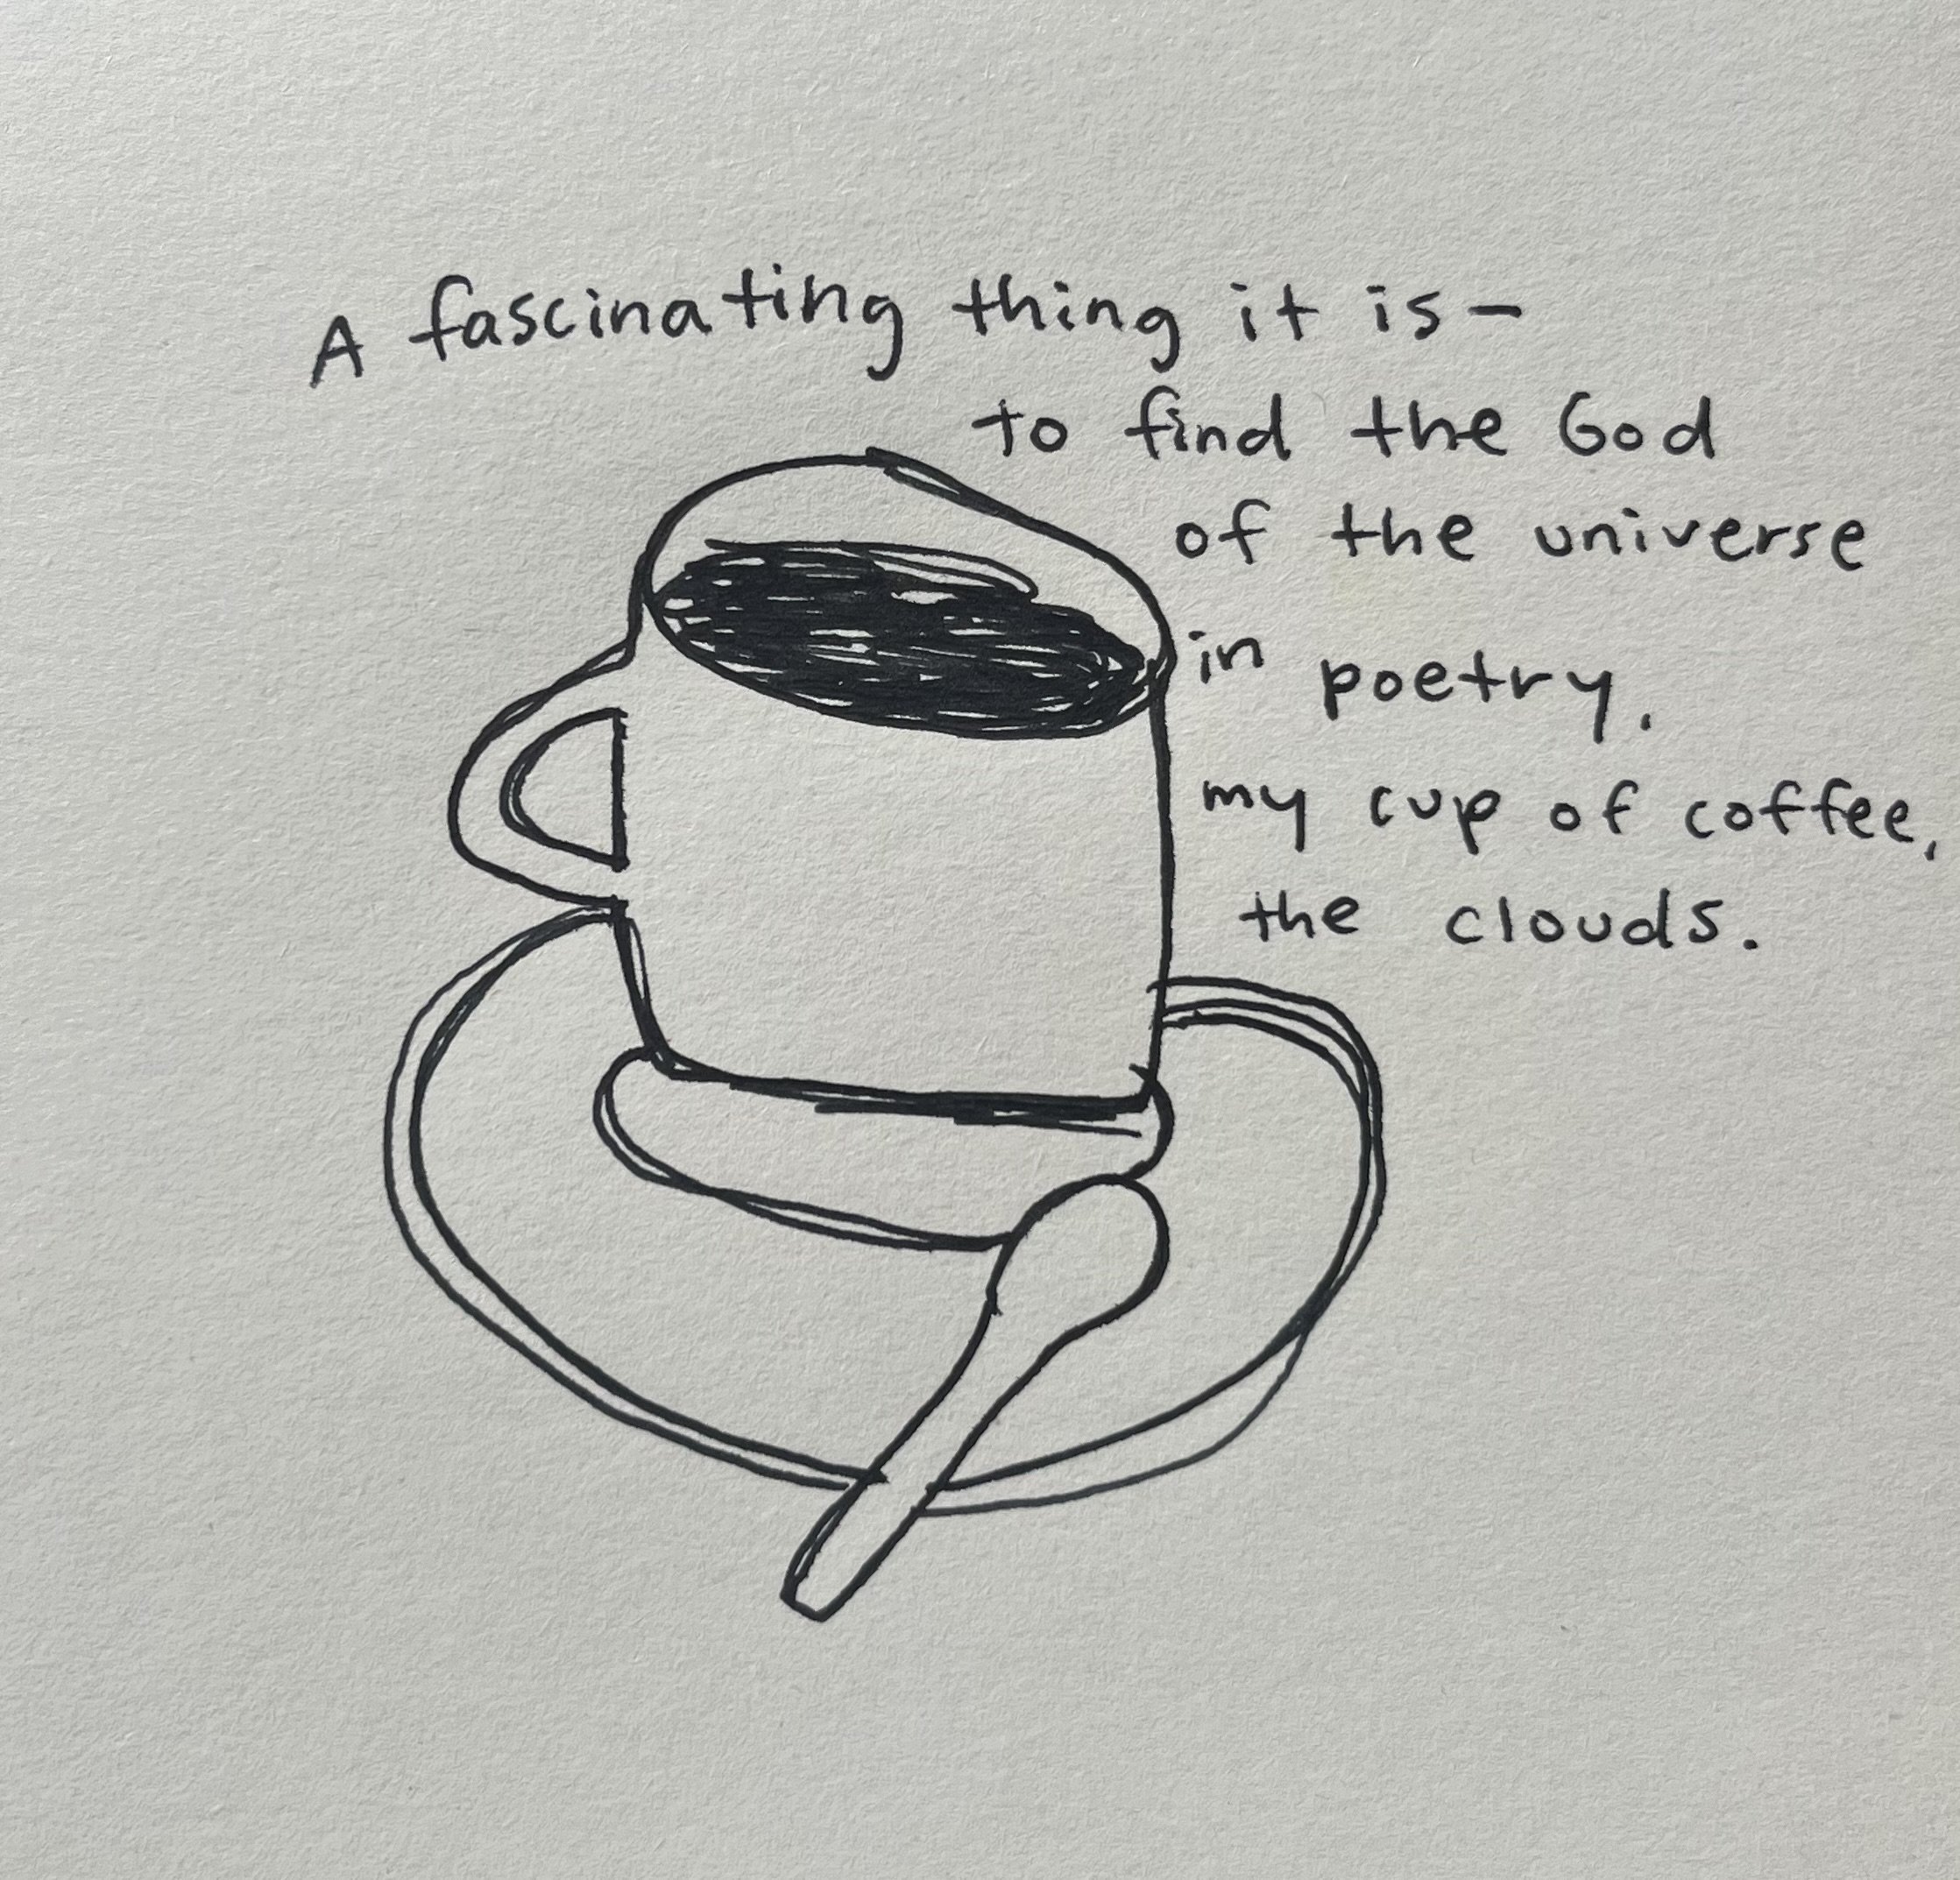 A fascinating thing it is-
to find the God
of the universe
in poetry,
my cup of coffee,
the clouds.